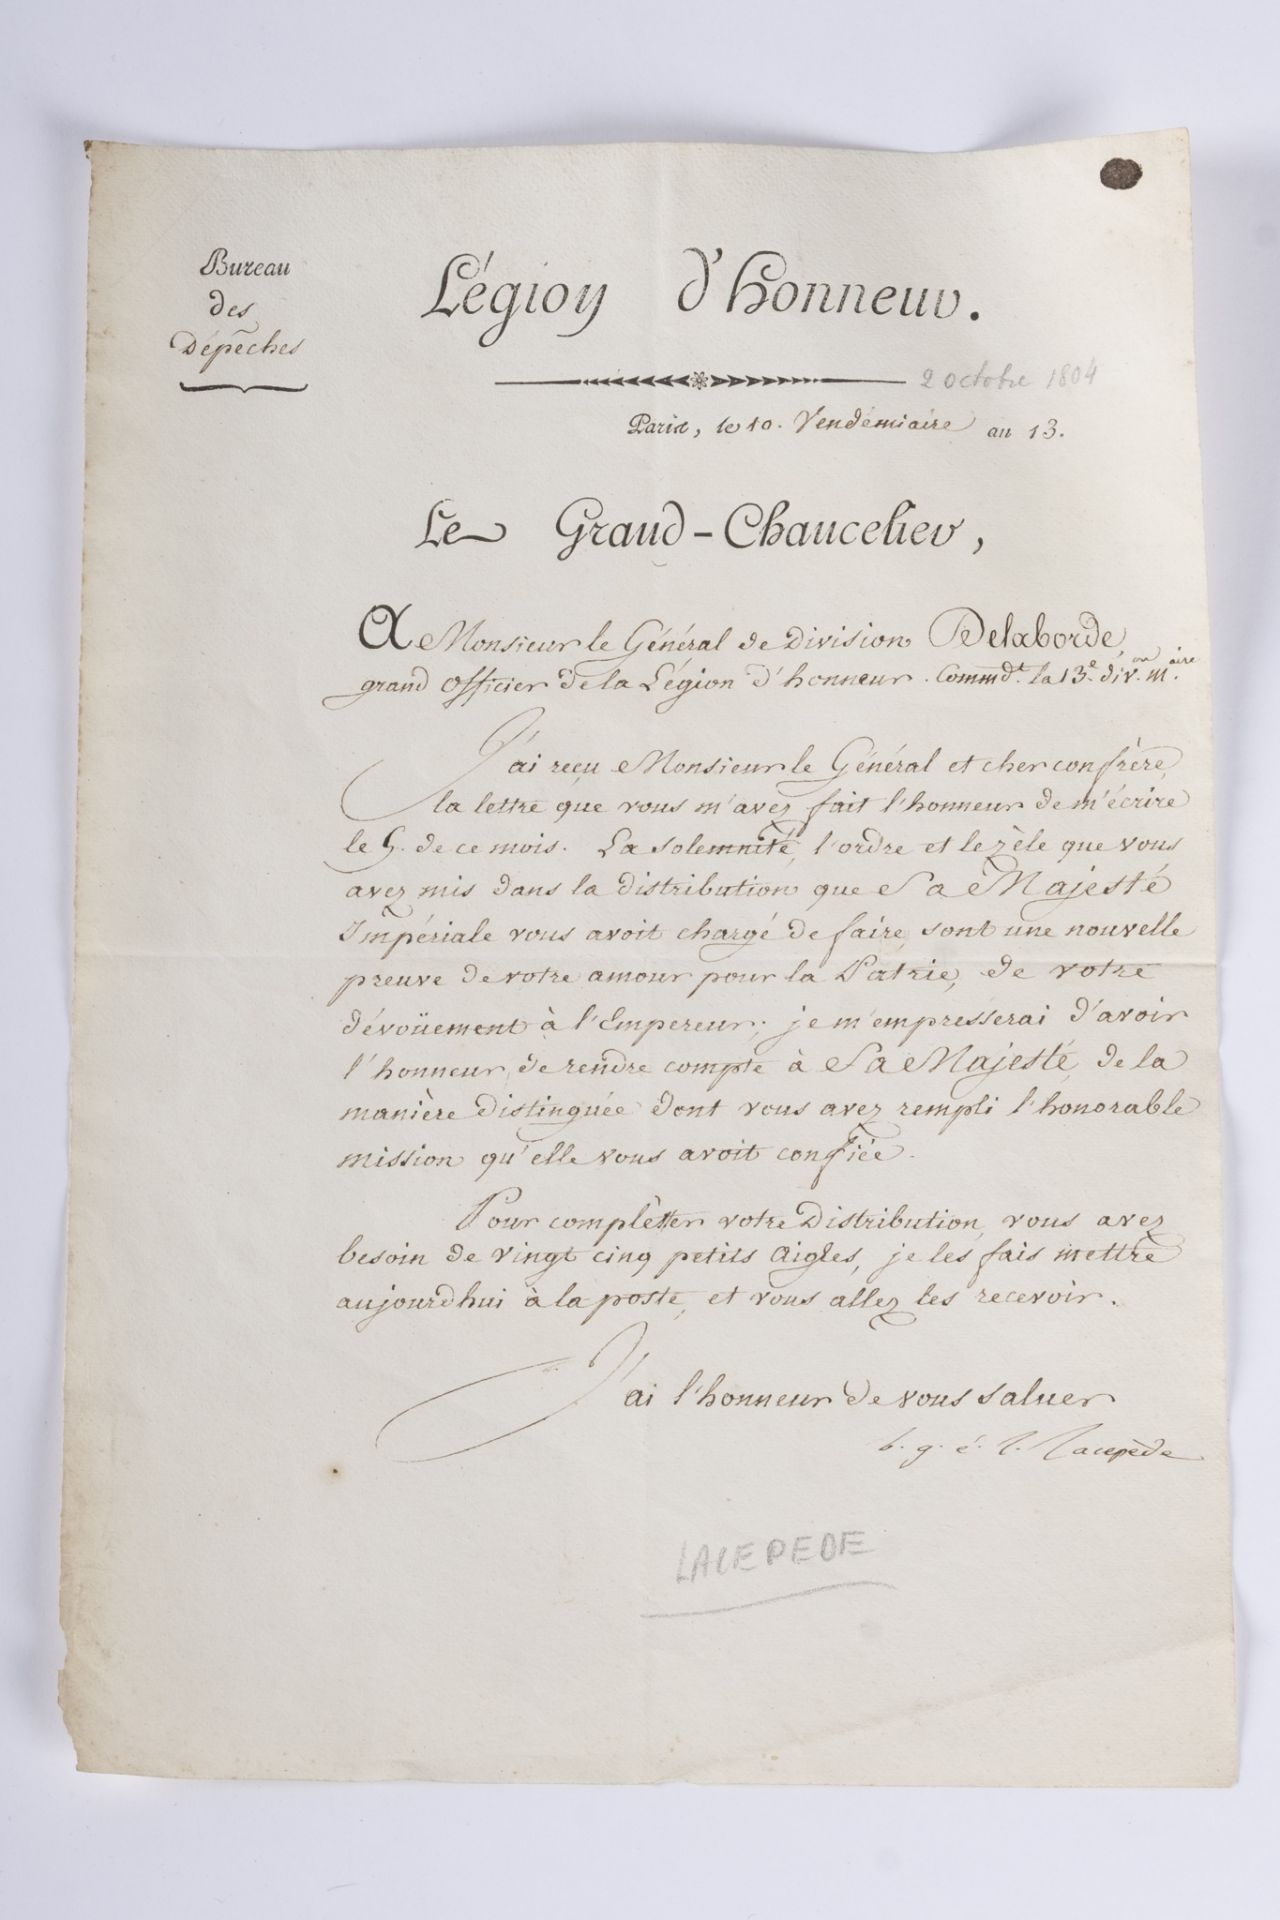 Bureau
des
Dépêches
Légion d'Honneur.
2 octobre 1804
Paris, le 10. Vendémiaire an 13.
Le Grand-Chancelier,
A Monsieur le Général de Division Delaborde,
grand officier de la Légion d'honneur. Commdt. la 13e. divon. maire.
J'ai reçu Monsieur le Général et cher confrère,
la lettre que vous m'avez fait l'honneur de m'écrire
le 5. de ce mois. La solemnité, l'ordre et le zèle que vous
avez mis dans la distribution que Sa Majesté
Impériale vous avoit chargé de faire, sont une nouvelle
preuve de votre amour pour la Patrie, de votre
dévoüement à l'Empereur; je m'empresserai d'avoir
l'honneur de rendre compte à Sa Majesté, de la
manière distinguée dont vous avez rempli l'honorable
mission qu'elle vous avoit confiée.
Pour complètter votre Distribution, vous avez
besoin de vingt cinq petits aigles, je les fais mettre
aujourdhui à la poste, et vous allez les recevoir.
J'ai l'honneur de vous saluer
b. g. é. l. Lacepède
LACEPEDE